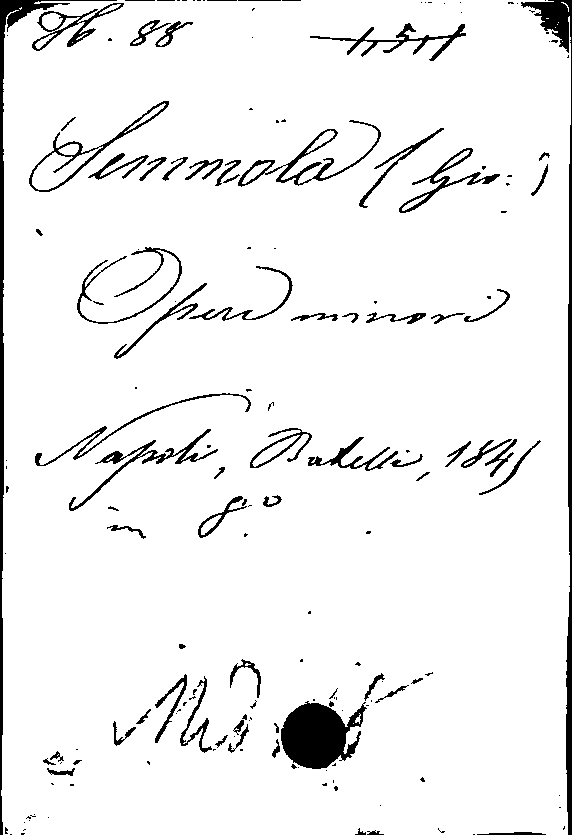 H. 88
Semmola (Gio:)
Opere minori
Napoli, Batelli, 1845
in 8.º